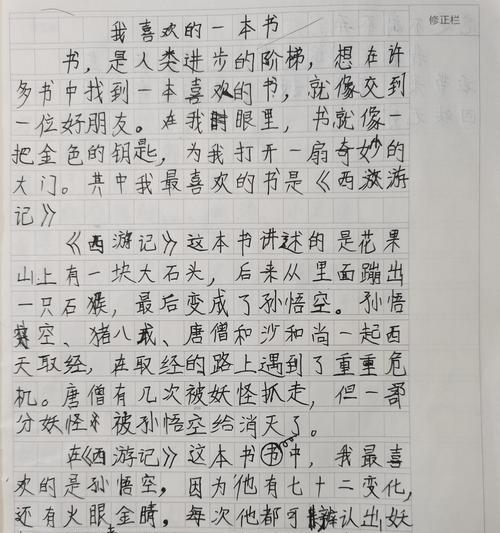 我喜欢的一本书
修正栏
书，是人类进步的阶梯，想在许
多书中找到一本喜欢的书，就像交到
一位好朋友。在我眼里，书就像一
把金色的钥匙，为我打开一扇奇妙的
大门。其中我最喜欢的书是《西游
记》
《西游记》这本书讲述的是花果
山上有一块大石头，后来从里面蹦出
一只石猴，最后变成了孙悟空。孙悟
空、猪八戒、唐僧和沙和尚一起西
天取经，在取经的路上遇到了重重危
机。唐僧有几次被妖怪抓走，但一部
分妖怪被孙悟空给消灭了。
在《西游记》这本书中，我最喜
欢的是孙悟空，因为他有七十二变化，
还有火眼金睛，每次他都可辨认出妖